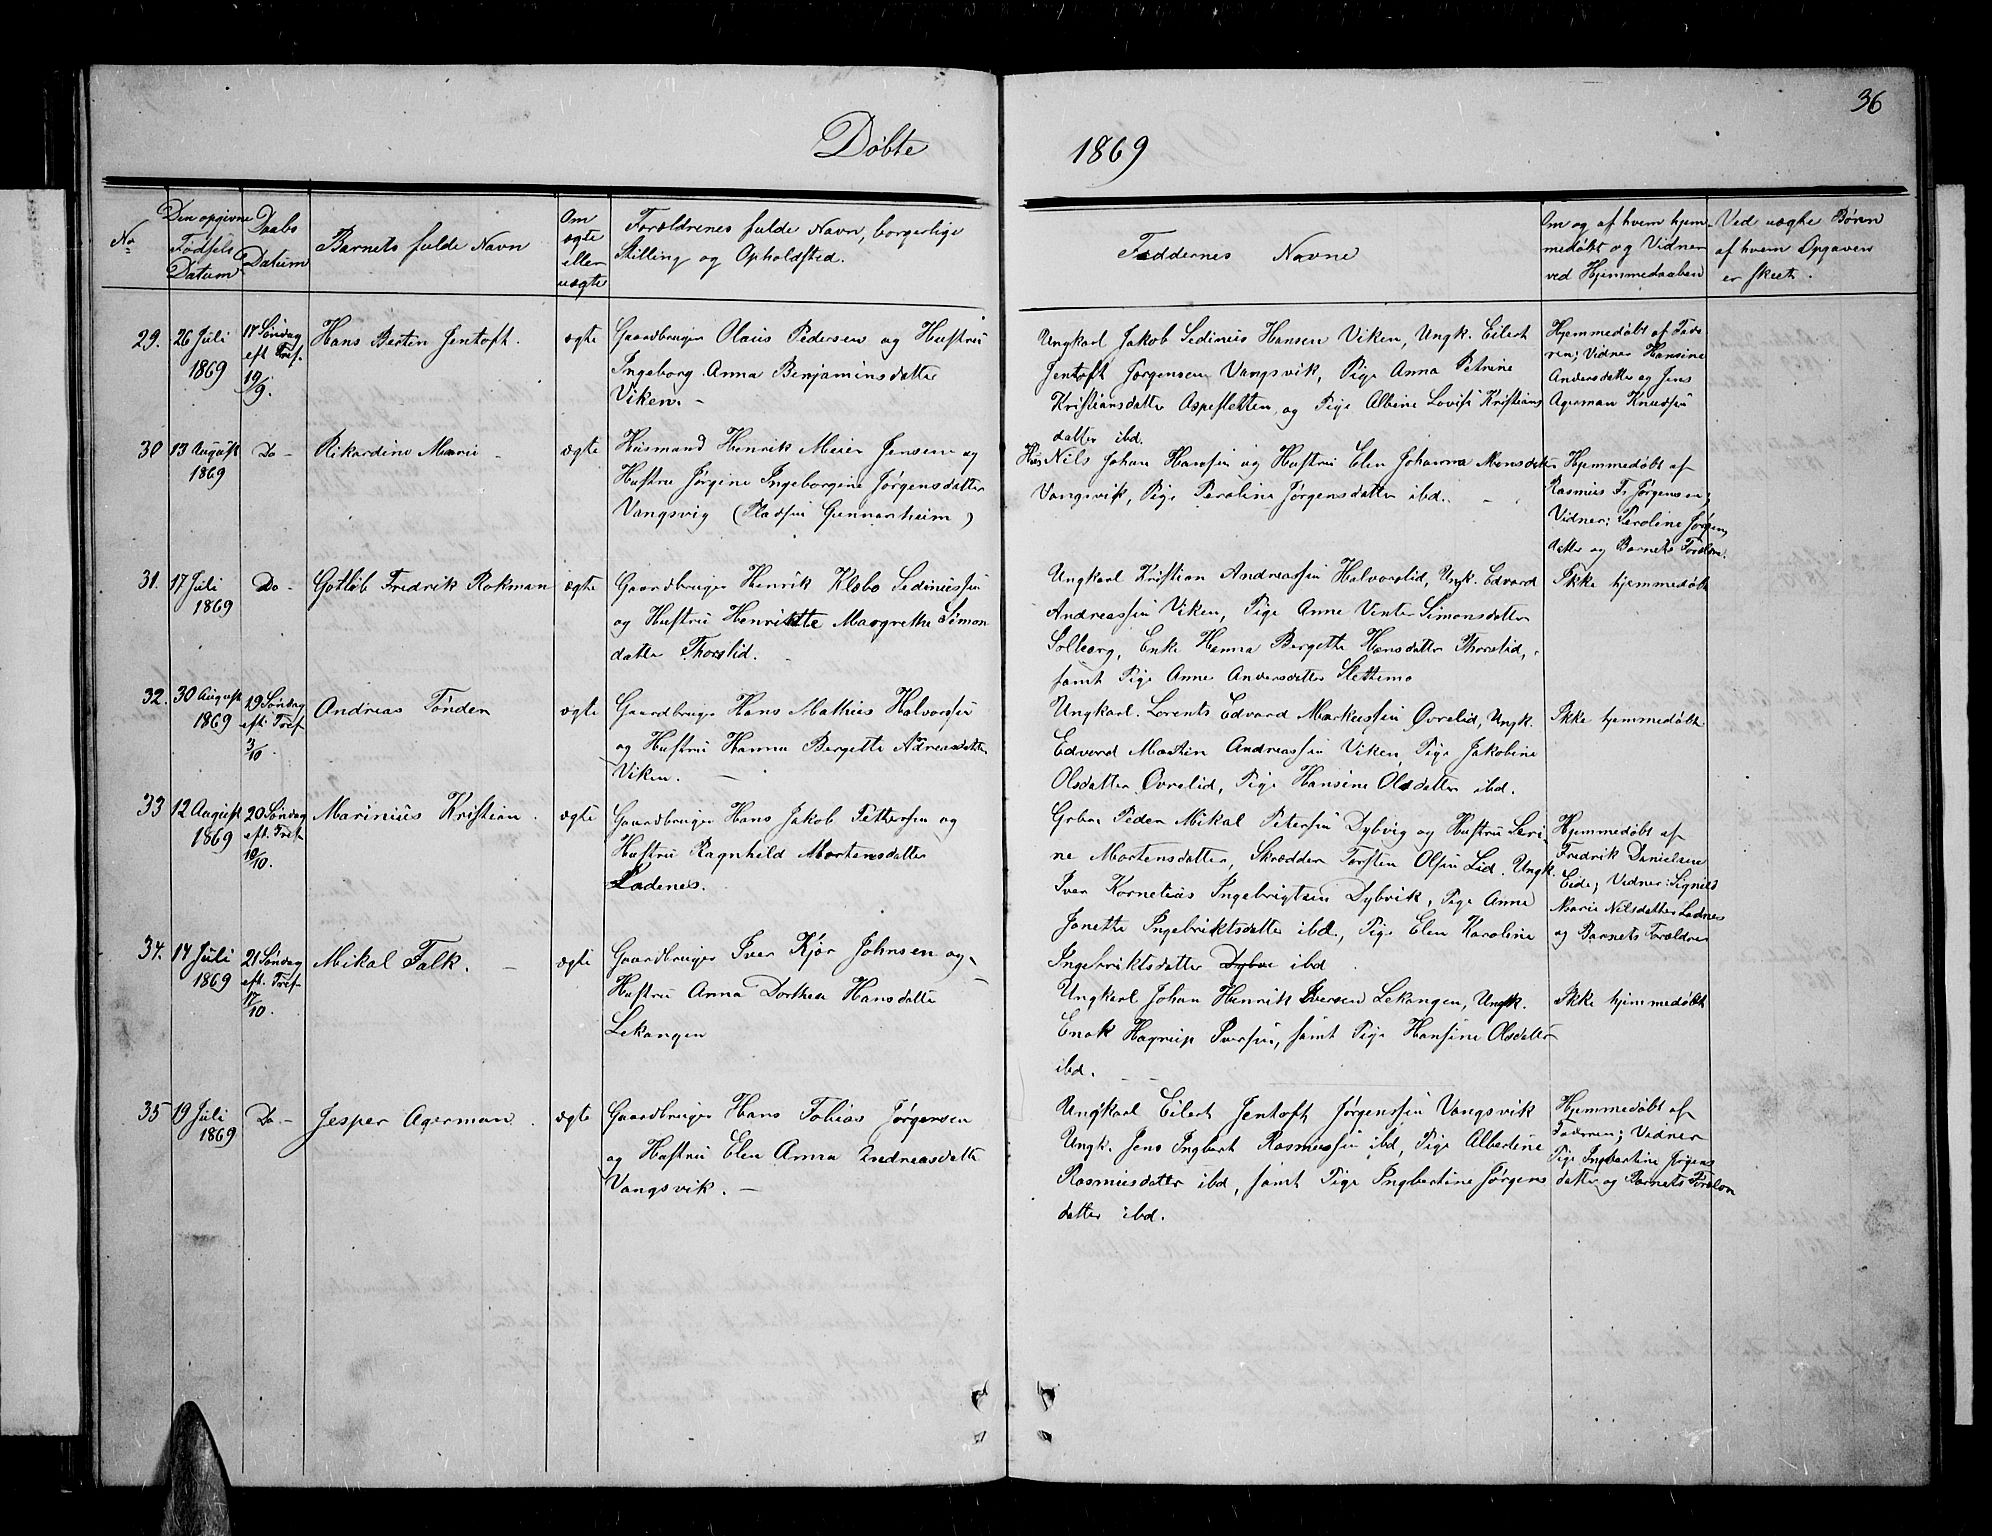 36
Døbte 1869
No
Den opgivne Fødsels Datum
Daabs Datum
Barnets fulde Navn
Om ægte eller uægte
Forældrenes fulde Navn, borgerlige
Stilling og Opholdsted.
Faddernes Navne
Om og af hvem hjem
medøbt og Vidner
ved Hjemmedaaben
Ved uægte Børn
af hvem Opgaven
er skeet.
29. 26 Juli 1869
17 Søndag eft Tref. 19/9.
Hans Bertin Jentoft. ægte
Gaardbruger Olaus Pedersen og Hustru
Ingeborg Anna Benjaminsdatter
Viken. -
Ungkarl Jakob Sedinius Hansen Viken, Ungk. Eilert
Jentoft Jørgensen Vangsvik, Pige Anna Petrine
Kristiansdatter Aspesletten, og Pige Albine Lovise Kristians
datter ibd.
Hjemmedøbt af Fade
ren; Vidner Hansine
Andersdatter og Jens
Agerman Knudsen
30 13 August 1869
Do -
Rikardine Marie - ægte
Husmand Henrik Meier Jensen og
Hustru Jørgine Ingeborgine Jørgensdatter
Vangsvig (Pladsen Gunnarheim)
Hus Nils Johan Hansen og Hustru Elen Johanna Monsdatter
Vangsvik, Pige Peroline Jørgensdatter ibd. -
Hjemmedøbt af
Rasmus F. Jørgensen;
Vidner: Peroline Jørgen
datter og Barnets Forældre.
31. 17 Juli 1869
Do -
Gotlöb Fredrik Rokman ægte
Gaardbruger Henrik Klebo Sedinussen
og Hustru Henriette Margrethe Simon
datter Thorslid. -
Ungkarl Kristian Andreassen Halvorslid, Ungk. Edvard
Andreassen Viken, Pige Anne Venter Simonsdatter
Solberg, Enke Hanna Bergette Hansdatter Thorslid,
samt Pige Anne Andersdatter Slettemo
Ikke hjemmedøbt
32. 30 August 1869
19 Søndag eft. Tref 3/10.
Andreas Tønder ægte
Gaardbruger Hans Mathias Halvorsen
og Hustru Hanna Bergette Andreasdatter
Viken. -
Ungkarl. Lorents Edvard Markussen Øvrelid, Ungk.
Edvard Martin Andreassen Viken, Pige Jakobine
Olsdatter Øvrelid, Pige Hansine Olsdatter ibd.
Ikke hjemmedøbt
33 12 August 1869
20 Søndag eft. Tref. 10/10.
Marinius Kristian. ægte
Gaardbruger Hans Jakob Pettersen og
Hustru Ragnhild Mortensdatter
Ladenes.
Grbr. Peder Mikal Petersen Dybvig og Hustru Seri
ne Mortensdatter, Skrædder Torsten Olsen Lid. Ungk.
Iver Kornelius Ingebrigtsen Dybvik, Pige Anne
Jonette Ingebriktsdatter ibd, Pige Elen Karoline
Ingebriktsdatter Dybv ibd
Hjemmedøbt af
Fredrik Danielsen
Eide; Vidner: Signild
Marie Nilsdatter Ladnes
og Barnets Forældre
34. 14 Juli 1869
21 Søndag eft. Tref- 17/10.
Mikal Falk. - ægte
Gaardbruger Iver Kjør Johnsen og
Hustru Anna Dorthea Hansdatter
Lekangen
Ungkarl Johan Henrik Iversen Lekangen, Ungk.
Enok Hagrup Iversen, samt Pige Hansine Olsdatter
ibd. -
Ikke hjemmedøbt
35 19 Juli 1869
Do -
Jesper Agerman. ægte
Gaardbruger Hans Tobias Jørgensen
og Hustru Elen Anna Andreasdatter
Vangsvik. -
Ungkarl Eilert Jentoft Jørgenssen Vangsvik
Ungk. Jens Ingbert Rasmussen ibd, Pige Albertine
Rasmusdatter ibd, samt Pige Ingbertine Jørgens
datter ibd.
Hjemmedøbt af
Faderen; Vidner
Pige Ingbertine Jørgens
datter og Barnets Forældre